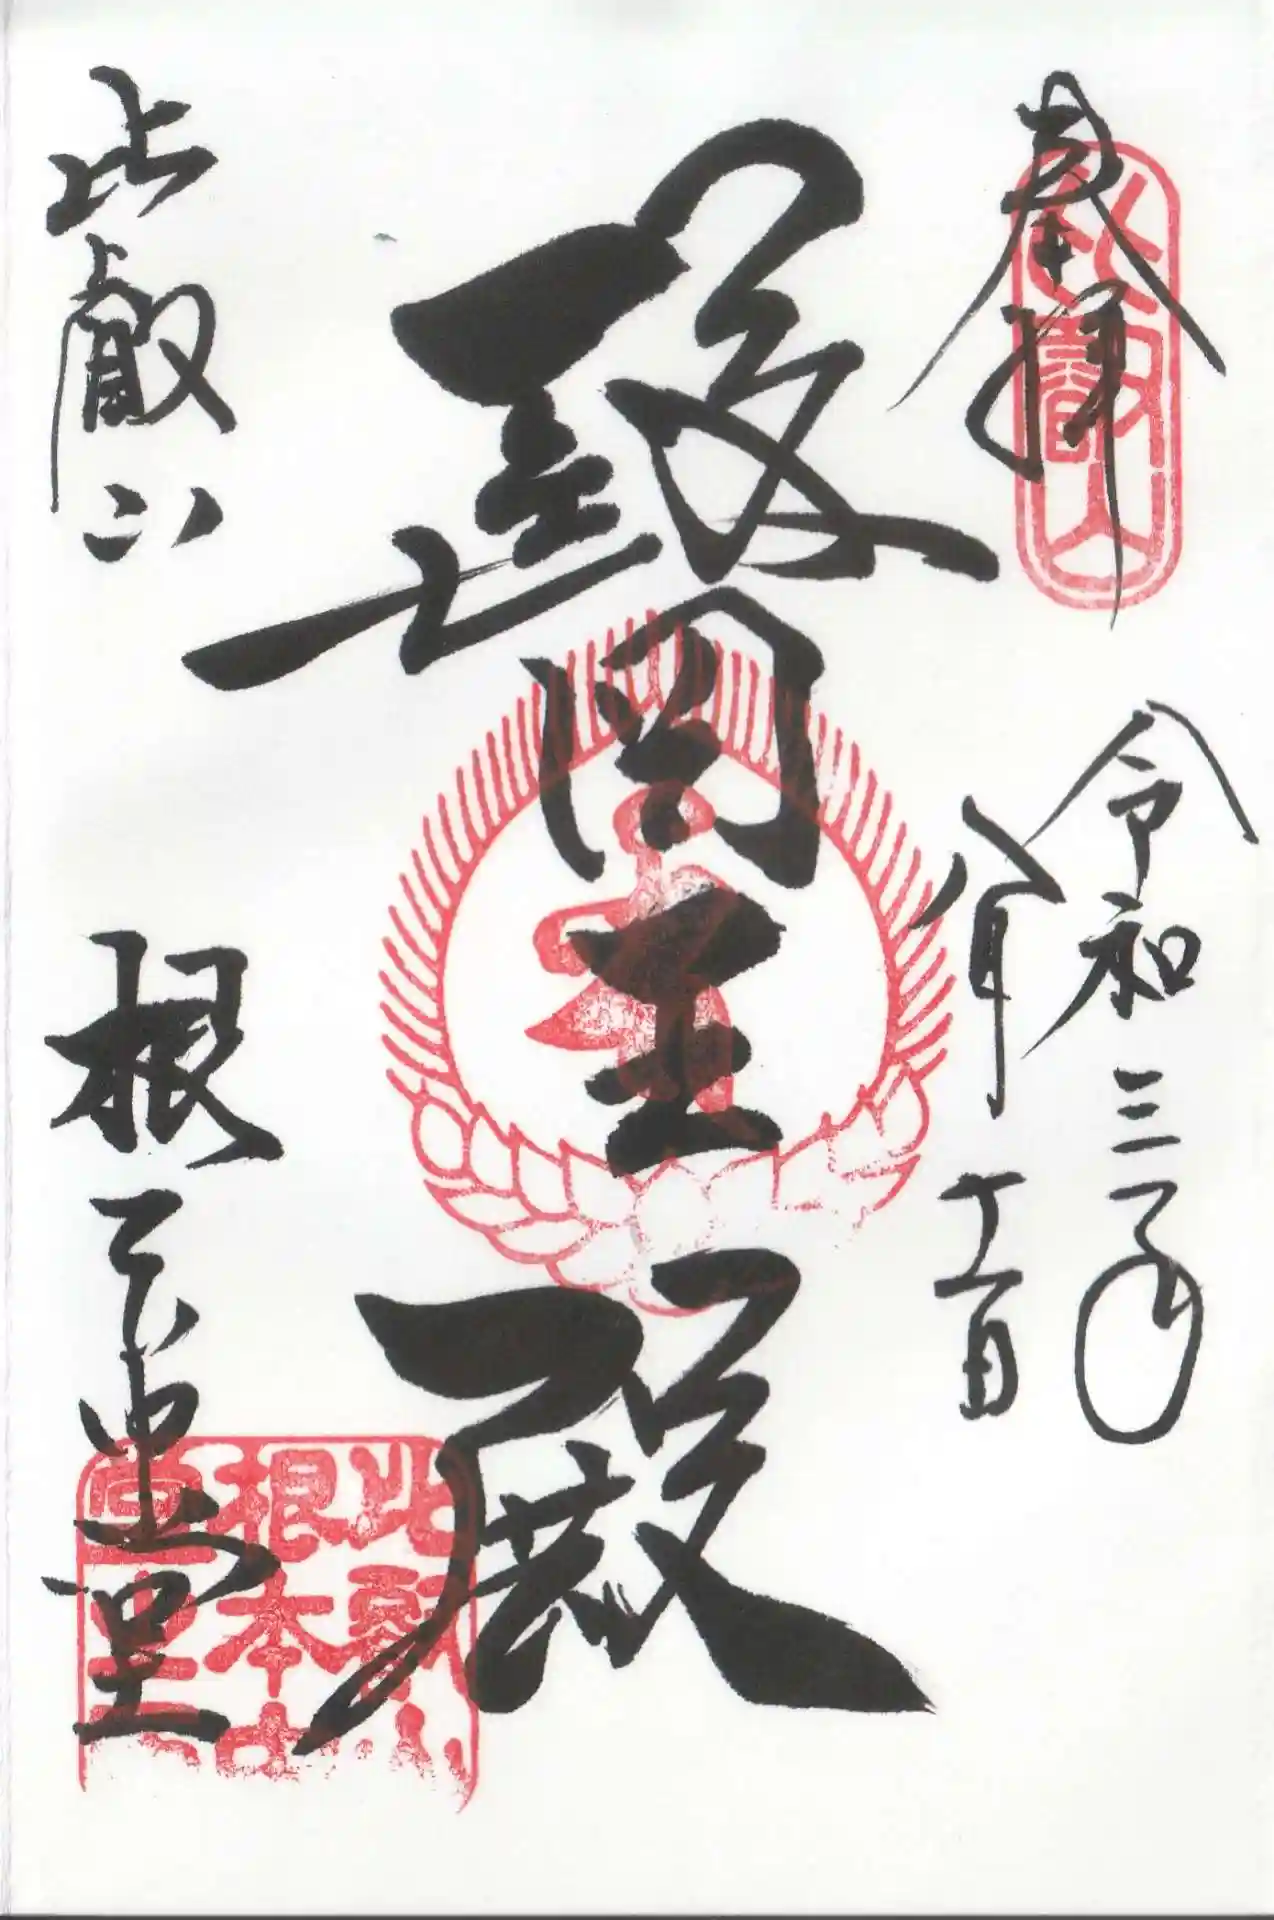 奉拝
比叡山
令和三年
八月
醫王殿
比叡山
根本中堂
比叡山
根本中
堂之